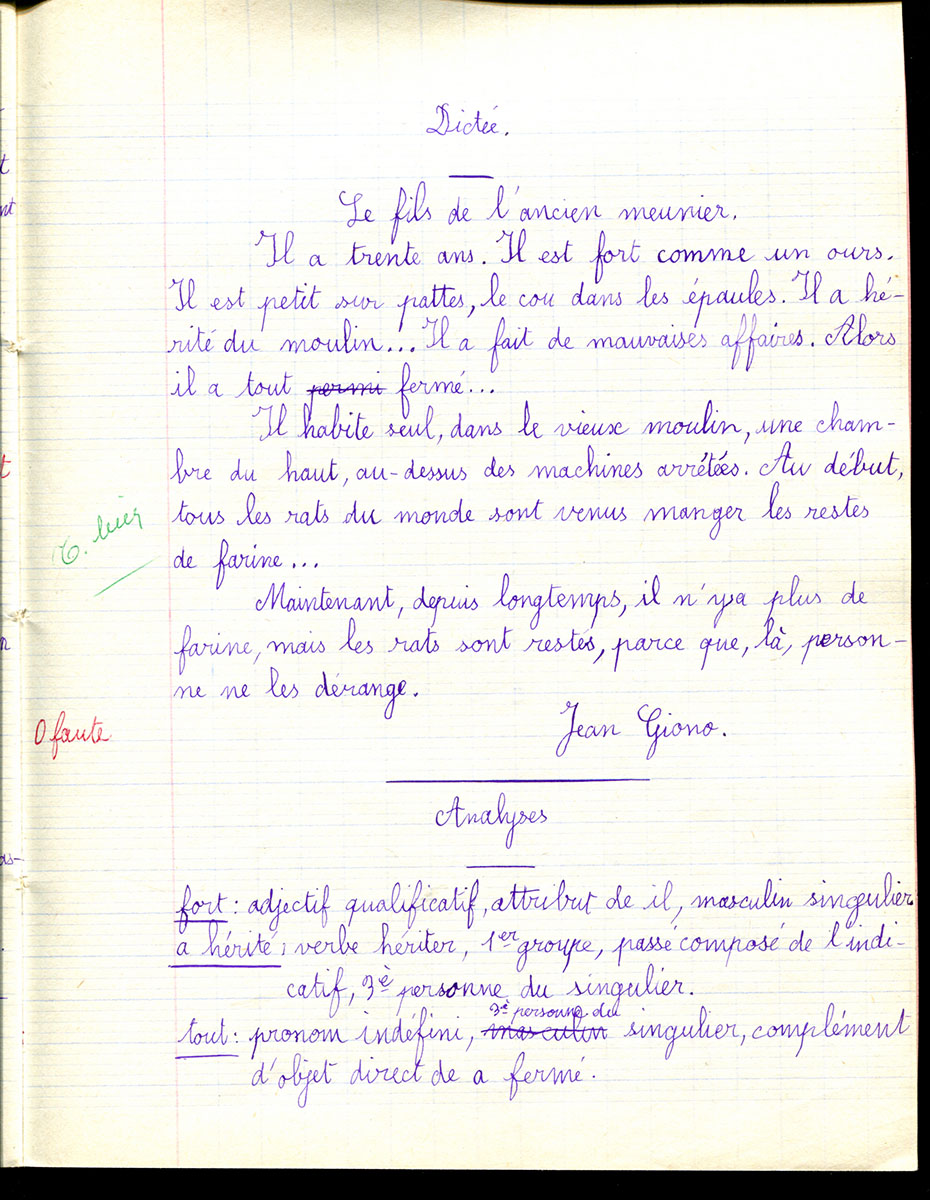 Dictée.
Le fils de l'ancien meunier.
Il a trente ans. Il est fort comme un ours.
Il est petit sur pattes, le cou dans les épaules. Il a hé-
rité du moulin... Il a fait de mauvaises affaires. Alors
il a tout permi fermé...
Il habite seul, dans le vieux moulin, une cham-
bre du haut, au-dessus des machines arrêtées. Au début,
tous les rats du monde sont venus manger les restes
T. bien
de farine...
Maintenant, depuis longtemps, il n'y a plus de
farine, mais les rats sont restés, parce que, là, person-
ne ne les dérange.
0 faute
Jean Giono.
Analyses
fort : adjectif qualificatif, attribut de il, masculin singulier
a hérité : verbe hériter, 1er groupe, passé composé de l'indi-
catif, 3è personne du singulier.
3è personne du
tout : pronom indéfini, masculin singulier, complément
d'objet direct de a fermé.